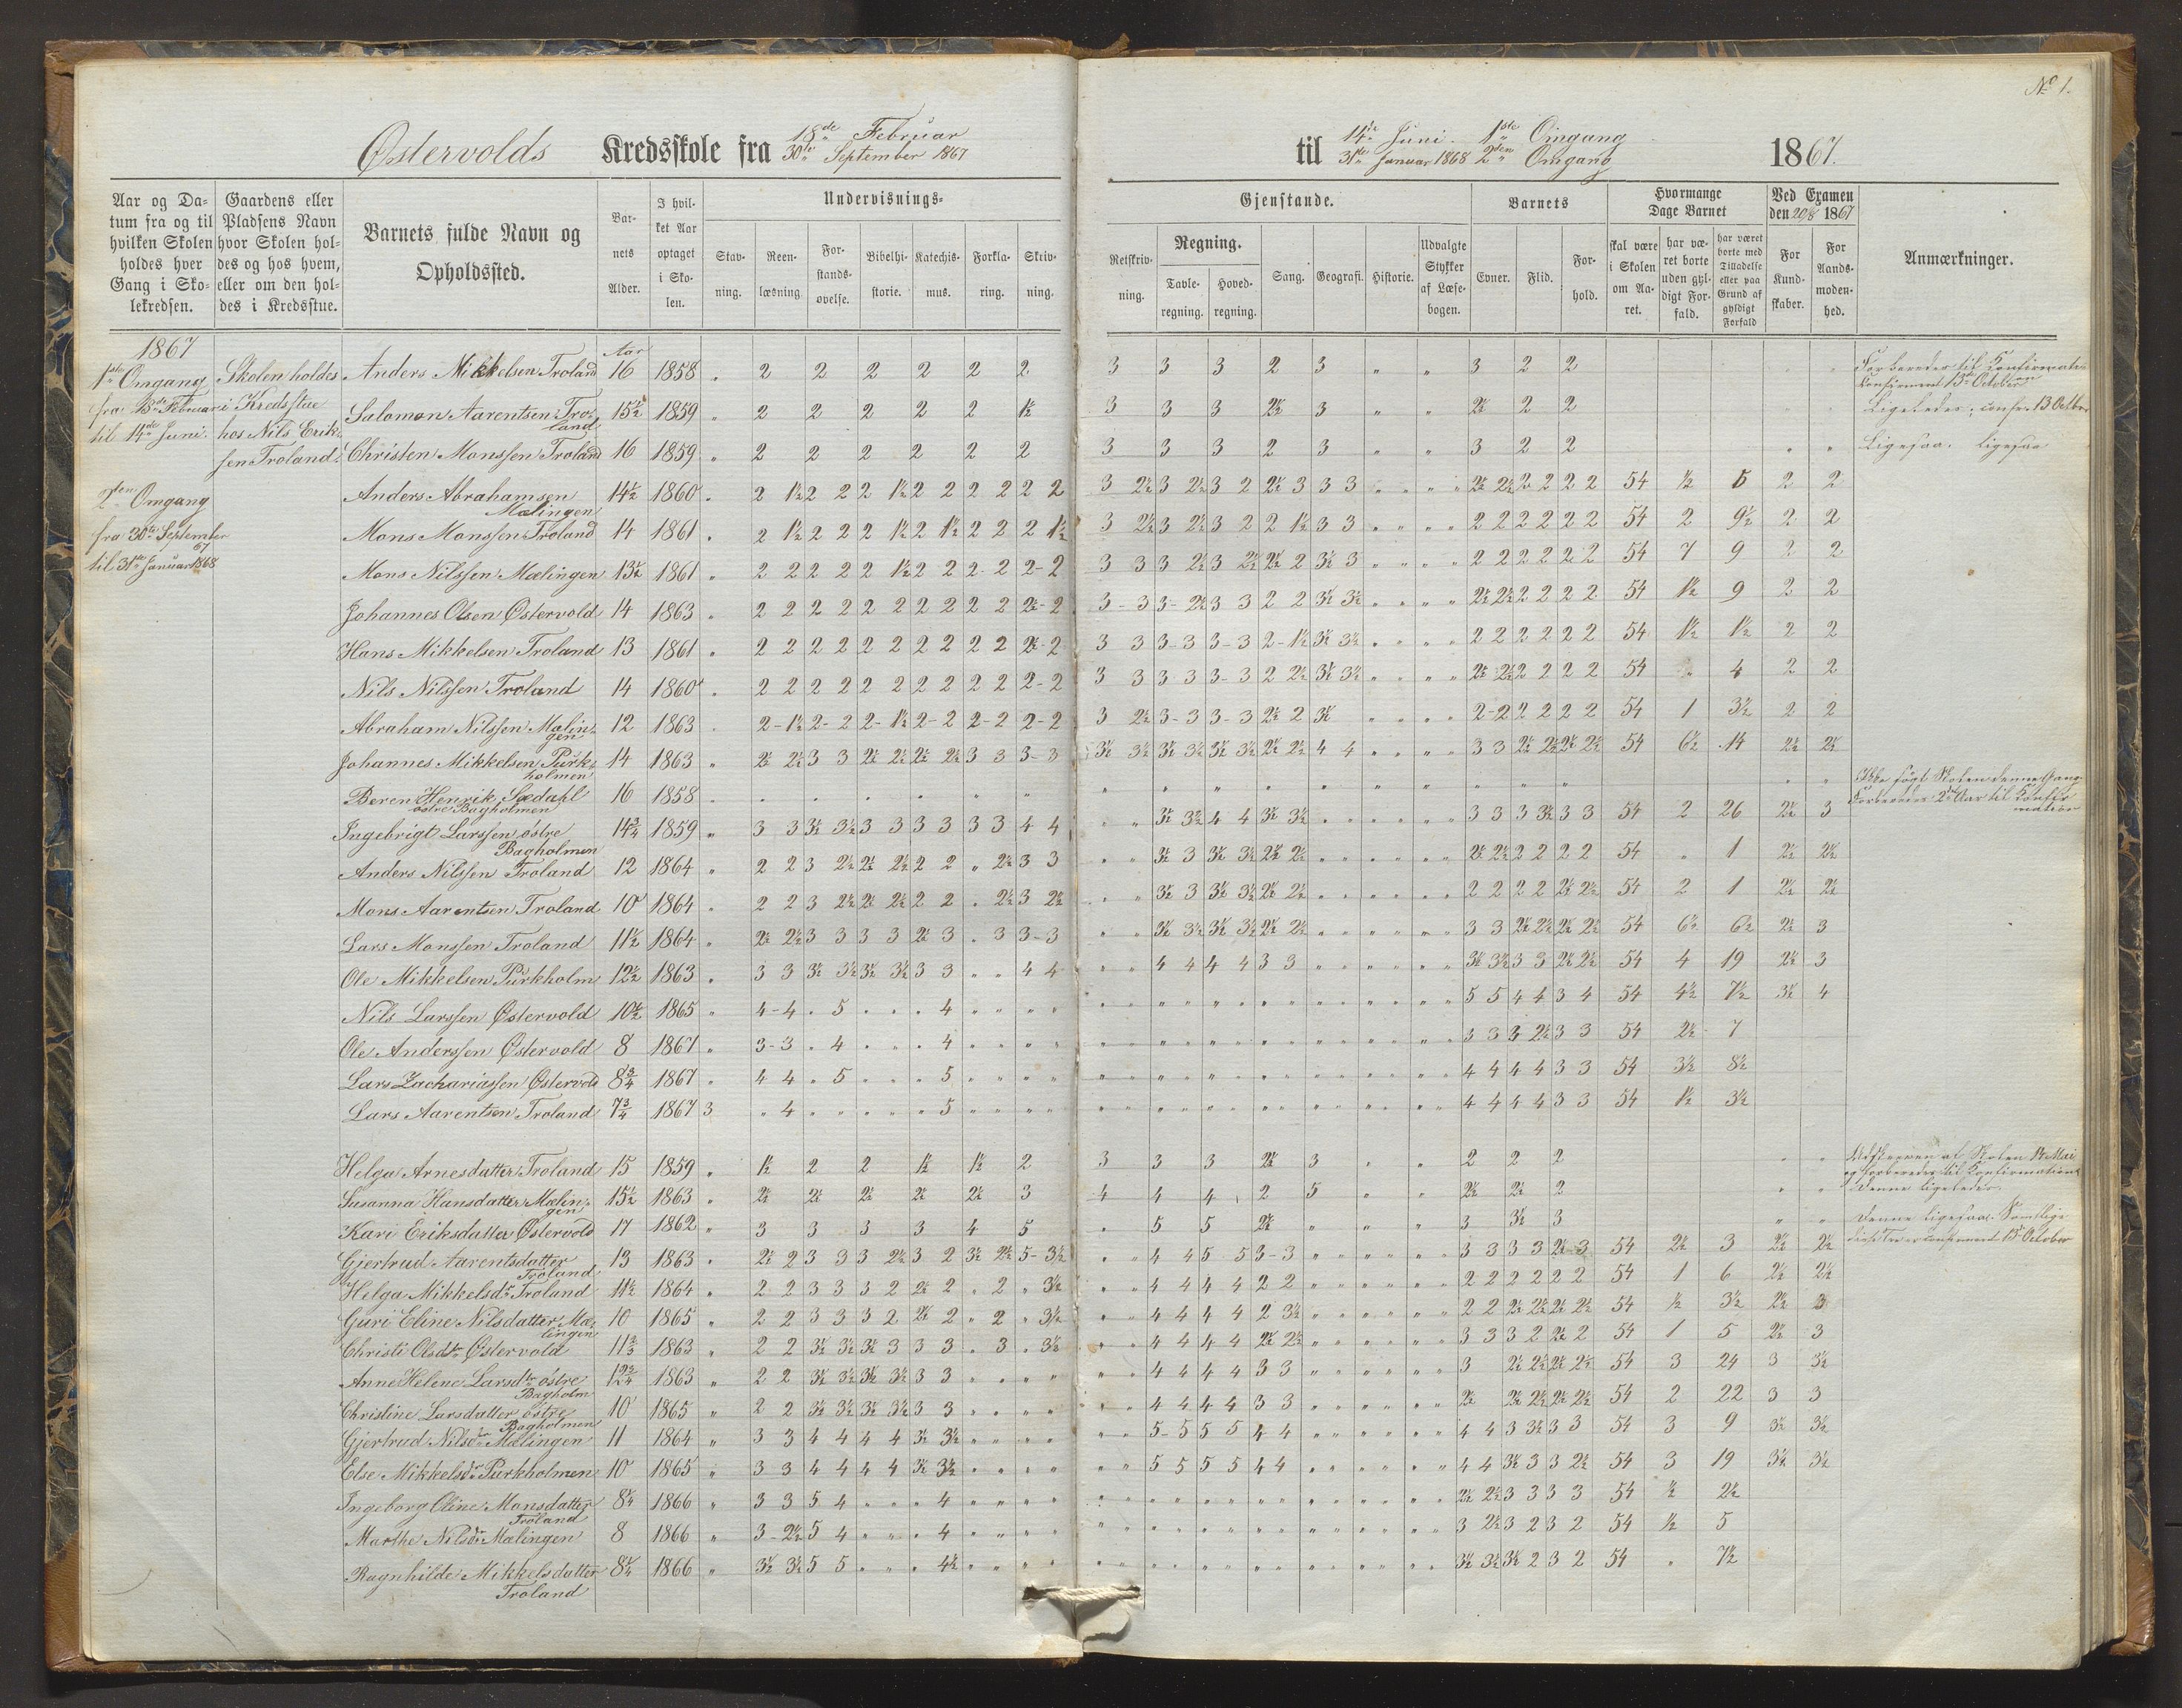 No 1.
Østervolds Kredsskole fra 18de Februar
30te September 1867
til 14de Juni 1ste Omgang
31te Januar 1868 2den Omgang
1867.
Aar og Da-
tum fra og til
hvilken Skolen
holdes hver
Gang i Sko-
lekredsen.
Gaardens eller
Pladsens Navn
hvor Skolen hol-
des og hos hvem,
eller om den hol-
des i Kredsstue.
Barnets fulde Navn og
Opholdssted.
Bar-
nets
Alder.
I hvil-
ket Aar
optaget
i Sko-
len.
Undervisnings-
Stav-
ning.
Reen-
læsning
For-
stands-
øvelse.
Bibelhi-
storie.
Katechis-
mus.
Forkla-
ring.
Skriv-
ning.
Gjenstande.
Retskriv-
ning.
Regning.
Tavle-
regning.
Hoved-
regning.
Sang.
Geografi.
Historie.
Udvalgte
Stykker
af Læse-
bogen.
Barnets
Evner.
Flid.
For-
hold.
Hvormange
Dage Barnet
skal være
i Skolen
om Aa-
ret.
har væ-
ret borte
uden gyl-
digt For-
fald.
har været
borte med
Tilladelse
eller paa
Grund af
gyldigt
Forfald
Ved Examen
den 20/8 1867
For
Kund-
skaber.
For
Aands-
moden-
hed.
Anmærkninger.
1867
1ste Omgang
fra 18de Februar
til 14de Juni.
2den Omgang
fra 30te September
67
til 31te Januar 1868
Skolen holdes
i Kredsstue
hos Nils Erik-
sen Troland.
Aar
Anders Mikkelsen Troland 16 1858 " 2 2 2 2 2 2 3 3 3 2 3 " " 3 2 2
Salomon Aarentsen Tro-
land 15½ 1859 " 2 2 2 2 2 1½ 3 3 3 2½ 3 " " 2½ 2 2 Ligeledes; confr. 13 Octbr
Christen Monssen Troland 16 1859 " 2 2 2 2 2 2 3 3 3 2 3 " " 3 2 2 " " Ligesaa. ligesaa
Anders Abrahamsen
Mælingen 14½ 1860 " 2 1½ 2 2 2 1½ 2 2 2 2 2 2 3 2½ 3 2½ 3 2 2½ 3 3 3 " " " " 2½ 2½ 2 2 2 2 54 ½ 5 2 2
Mons Monssen Troland 14 1861 " 2 1½ 2 2 2 1½ 2 1½ 2 2 2 1½ 3 2½ 3 2½ 3 2 2 1½ 3 3 " " " " 2 2 2 2 2 2 54 2 9½ 2 2
Mons Nilssen Mælingen 13½ 1861 " 2 2 2 2 2 1½ 2 2 2 2 2-2 3 3 3 2½ 3 2½ 2½ 2 3½ 3 " " " " 2 2 2 2 2 2 54 7 9 2 2
Johannes Olsen Østervold 14 1863 " 2 2 2 2 2 2 2 2 2 2 2½-2 3-3 3-2½ 3 3 2 2 3½ 3½ " " " " 2½ 2½ 2 2 2 2 54 1½ 9 2 2
Hans Mikkelsen Troland 13 1861 " 2 2 2 2 2 2 2 2 2 2 2½-2 3 3 3-3 3-3 2-1½ 3½ 3½ " " " " 2 2 2 2 2 2 54 1½ 1½ 2 2
Nils Nilssen Troland 14 1860 " 2 2 2 2 2 2 2 2 2 2 2-2 3 3 3 3 3-3 2 2½ 3½ 3½ " " " " 2½ 2½ 2 2 2 2 54 " 4 2 2
Abraham Nilssen Mælin-
gen 12 1863 " 2-1½ 2-2 2-1½ 2-2 2-2 2-2 3 2½ 3-3 3-3 2½ 2 3½ " " " " 2-2 2 2 2 2 54 1 3½ 2 2
Johannes Mikkelsen Purk-
holmen 14 1863 " 2½ 2½ 3 3 2½ 2½ 2½ 2½ 3 3 3-3 3½ 3½ 3½ 3½ 3½ 3½ 2½ 2½ 4 4 " " " " 3 3 2½ 2½ 2½ 2½ 54 6½ 14 2½ 2½
Beren Henrik Sædahl
østre Bagholmen 16 1858
Ingebrigt Larssen østre
Bagholmen 14¾ 1859 " 3 3 3½ 3½ 3 3 3 3 3 3 4 4 " " 3½ 3½ 4 4 3½ 3½ " " " " " " 3 3 3 3½ 3 3 54 2 26 2½ 3
Anders Nilssen Troland 12 1864 " 2 2 3 2½ 2½ 2½ 2 2 " 2½ 3 3 " " 3½ 3 3½ 3½ 2½ 2½ " " " " " " 2½ 2½ 2 2 2 2 54 " 1 2½ 2½
Mons Aarentsen Troland 10 1864 " 2 2 3 2½ 2½ 2½ 2 2 " 2½ 3 2½ " " 3½ 3 3½ 3½ 2½ 2½ " " " " " " 2 2 2 2 2½ 2½ 54 2 1 2½ 2½
Lars Monssen Troland 11½ 1864 " 2½ 2½ 3 3 3 3 2½ 3 " 3 3-3 " " 3½ 3½ 3½ 3½ 2½ 2½ " " " " " " 3 3 2½ 2½ 2½ 2½ 54 6½ 6½ 2½ 3
Ole Mikkelsen Purkholm 12½ 1863 " 3 3 3½ 3½ 3½ 3½ 3 3 " " 4 4 " " 4 4 4 4 3 3 " " " " " " 3½ 3½ 3 3 2½ 2½ 54 4 19 2½ 3
Nils Larssen Østervold 10½ 1865 " 4-4 " 5 " " " 4 " " " " 5 5 4 4 3 4 54 4½ 7½ 3½ 4
Ole Anderssen Østervold 8 1867 " 3-3 " 4 " " " 4 " " " " 3 3 3 2½ 3 3 54 2½ 7
Lars Zachariassen Østervold 8¾ 1867 " 4 4 " 5 " " " 5 " " " " 4 4 4 4 3 3 54 3½ 8½
Lars Aarentsen Troland 7¾ 1867 3 " 4 " " " " " 5 " " " " 4 4 4 4 3 3 54 1½ 3½
Helga Arnesdatter Troland 15 1859 " 1½ 2 2 1½ 1½ 2 3 3 3 2½ 3 " " 2 2 2
Susanna Hansdatter Mælin-
gen 15½ 1863 " 2½ 2½ 2½ 2½ 2½ 3 4 4 4 2 5 " " 2½ 2½ 2 Denne ligeledes.
Kari Eriksdatter Østervold 17 1862 " 3 3 3 3 4 5 " 5 5 2½ " " " 3 3½ 3
Gjertrud Aarentsdatter
Troland 13 1863 " 2½ 2 3 3 3 2½ 3 2 3½ 2½ 5-3½ " " 4 4 5 5 3-3 " " " " " " 3 3 3 3 2½-3 54 2½ 3 2½ 2½
Helga Mikkelsdr Troland 11½ 1864 " 2 2 3 3 3 2 2½ 2 " 2 " 3½ " " 4 4 4 4 2 2 " " " " " " 2 2 2 2 2 2 54 1 6 2½ 2½
Guri Eline Nilsdatter Mæ-
lingen 10 1865 " 2 2 3 3 3 2 2½ 2 " 2 " 3½ " " 4 4 4 4 2 3½ " " " " " " 2 2 2½ 2½ 2½ 2½ 54 ½ 3½ 2½ 3
Christi Olsdtr Østervold 11⅔ 1863 " 2 2 3½ 3½ 3½ 3 3 3 " 3 " 3½ " " 4 4 4 4 2½ 2½ " " " " " " 3 3 3 2 2½ 2 54 1 5 2½ 3
Anne Helene Larsdtr østre
Bagholm 12¾ 1863 " 2 2 3½ 3½ 3½ 3½ 3 3 " " " " " " 4 4 4 4 3 3 " " " " " " 3 2½ 2½ 2½ 2½ 54 3 24 3 3½
Christine Larsdatter østre
Bagholmen 10 1865 " 2 2 3½ 3½ 3½ 3½ 3 3 " " " " " " 4 4 4 4 3 3 " " " " " " 2½ 2½ 2½ 2½ 2½ 54 2 22 3 3
Gjertrud Nilsdr Mælingen 11 1864 " 3 3 4 4 4 4 3½ 3½ " " " " " " 5-5 5 5 4 4 " " " " " " 4 4 3 3½ 3 3 54 3 9 3½ 3½
Else Mikkelsdr Purkholmen 10 1865 " 3 3 4 4 4 4 3½ 3½ " " " " " " 5 5 5 5 4 4 " " " " " " 4 4 3½ 3 3 2½ 54 3 19 3½ 3½
Ingeborg Oline Monsdatter
Troland 8¼ 1866 " 3 3 5 4 " " " 4 " " " " 2½ 2½ 3 3 3 3 54 ½ 2½
Marthe Nilsdr Mælingen 8 1866 " 3-2½ 5 4 " " " 4 " " " " 3 2½ 3 2 3 2 54 1½ 5
Ragnhilde Mikkelsdatter
Troland 8¼ 1866 " 3½ 3½ 5 5 " " " 4½ " " " " 3½ 3½ 3½ 2 3 2 54 " 7½